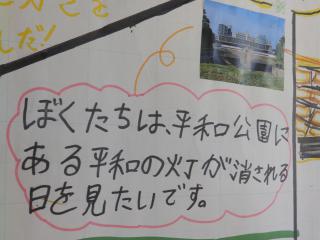 しだ!
ぼくたちは、平和公園に
ある平和の灯が消される
日を見たいです。